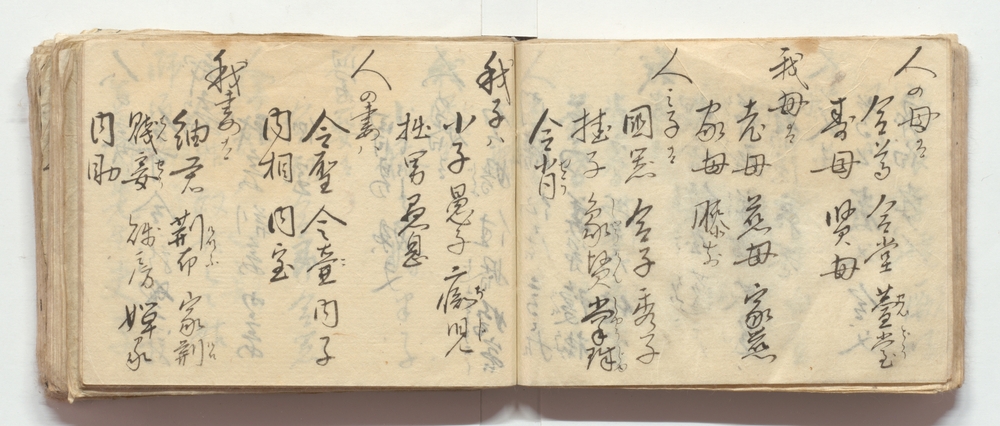 人の母を
令尊 令堂 萱堂
寿母 賢母
我母を
老母 慈母 家慈
家母
人之子を
国器 令子 秀子
桂子 象賢 掌珠
令肖
我子ハ
小子 愚子 痴児
拙男 愚息
人の妻ハ
令聖 令壺 内子
内相 内室
我妻を
細君 荊布 家荊
賤妾 賤房
内助